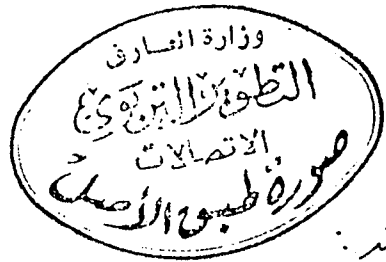 وزارة المعارف
التطوير التربوي
الاتصالات
صورة طبق الأصل